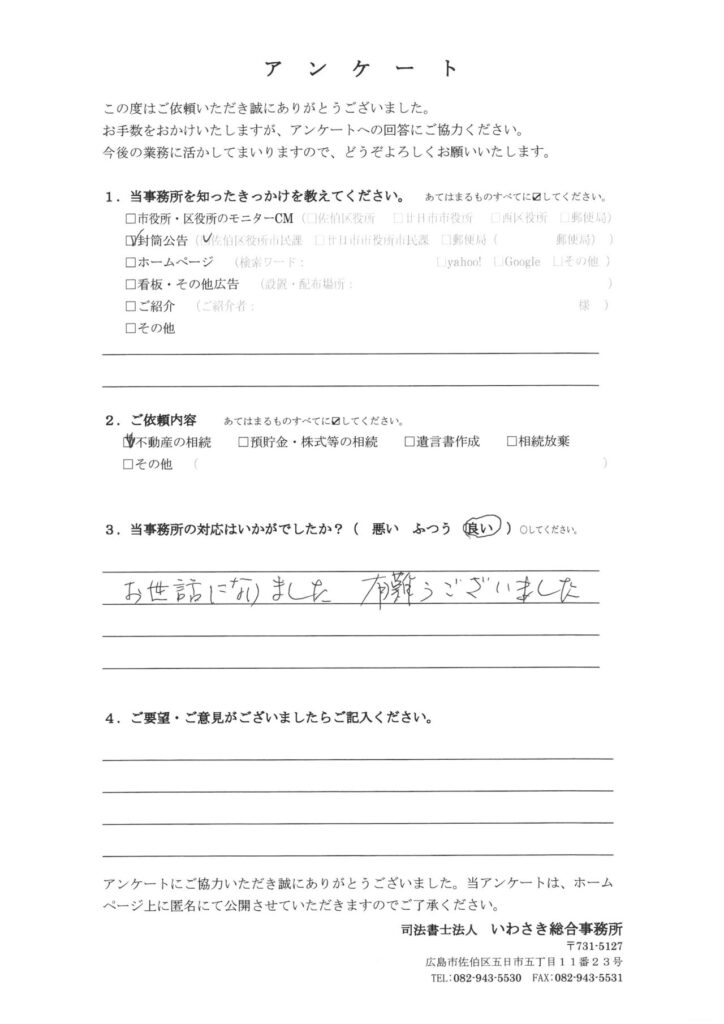 アンケート
この度はご依頼いただき誠にありがとうございました。
お手数をおかけいたしますが、アンケートへの回答にご協力ください。
今後の業務に活かしてまいりますので、どうぞよろしくお願いいたします。
１．当事務所を知ったきっかけを教えてください。 あてはまるものすべてに☑してください。
□市役所・区役所のモニターCM（□佐伯区役所 □廿日市市役所 □西区役所 □郵便局）
☑封筒公告（☑佐伯区役所市民課 □廿日市市役所市民課 □郵便局（ 郵便局））
□ホームページ （検索ワード： □yahoo! □Google □その他）
□看板・その他広告 （設置・配布場所： ）
□ご紹介 （ご紹介者： 様 ）
□その他
２．ご依頼内容 あてはまるものすべてに☑してください。
☑不動産の相続 □預貯金・株式等の相続 □遺言書作成 □相続放棄
□その他 （ ）
３．当事務所の対応はいかがでしたか？（ 悪い ふつう 良い ）○してください。
お世話になりました 有難うございました
４．ご要望・ご意見がございましたらご記入ください。
アンケートにご協力いただき誠にありがとうございました。当アンケートは、ホーム
ページ上に匿名にて公開させていただきますのでご了承ください。
司法書士法人 いわさき総合事務所
〒731-5127
広島市佐伯区五日市五丁目１１番２３号
TEL:082-943-5530 FAX:082-943-5531